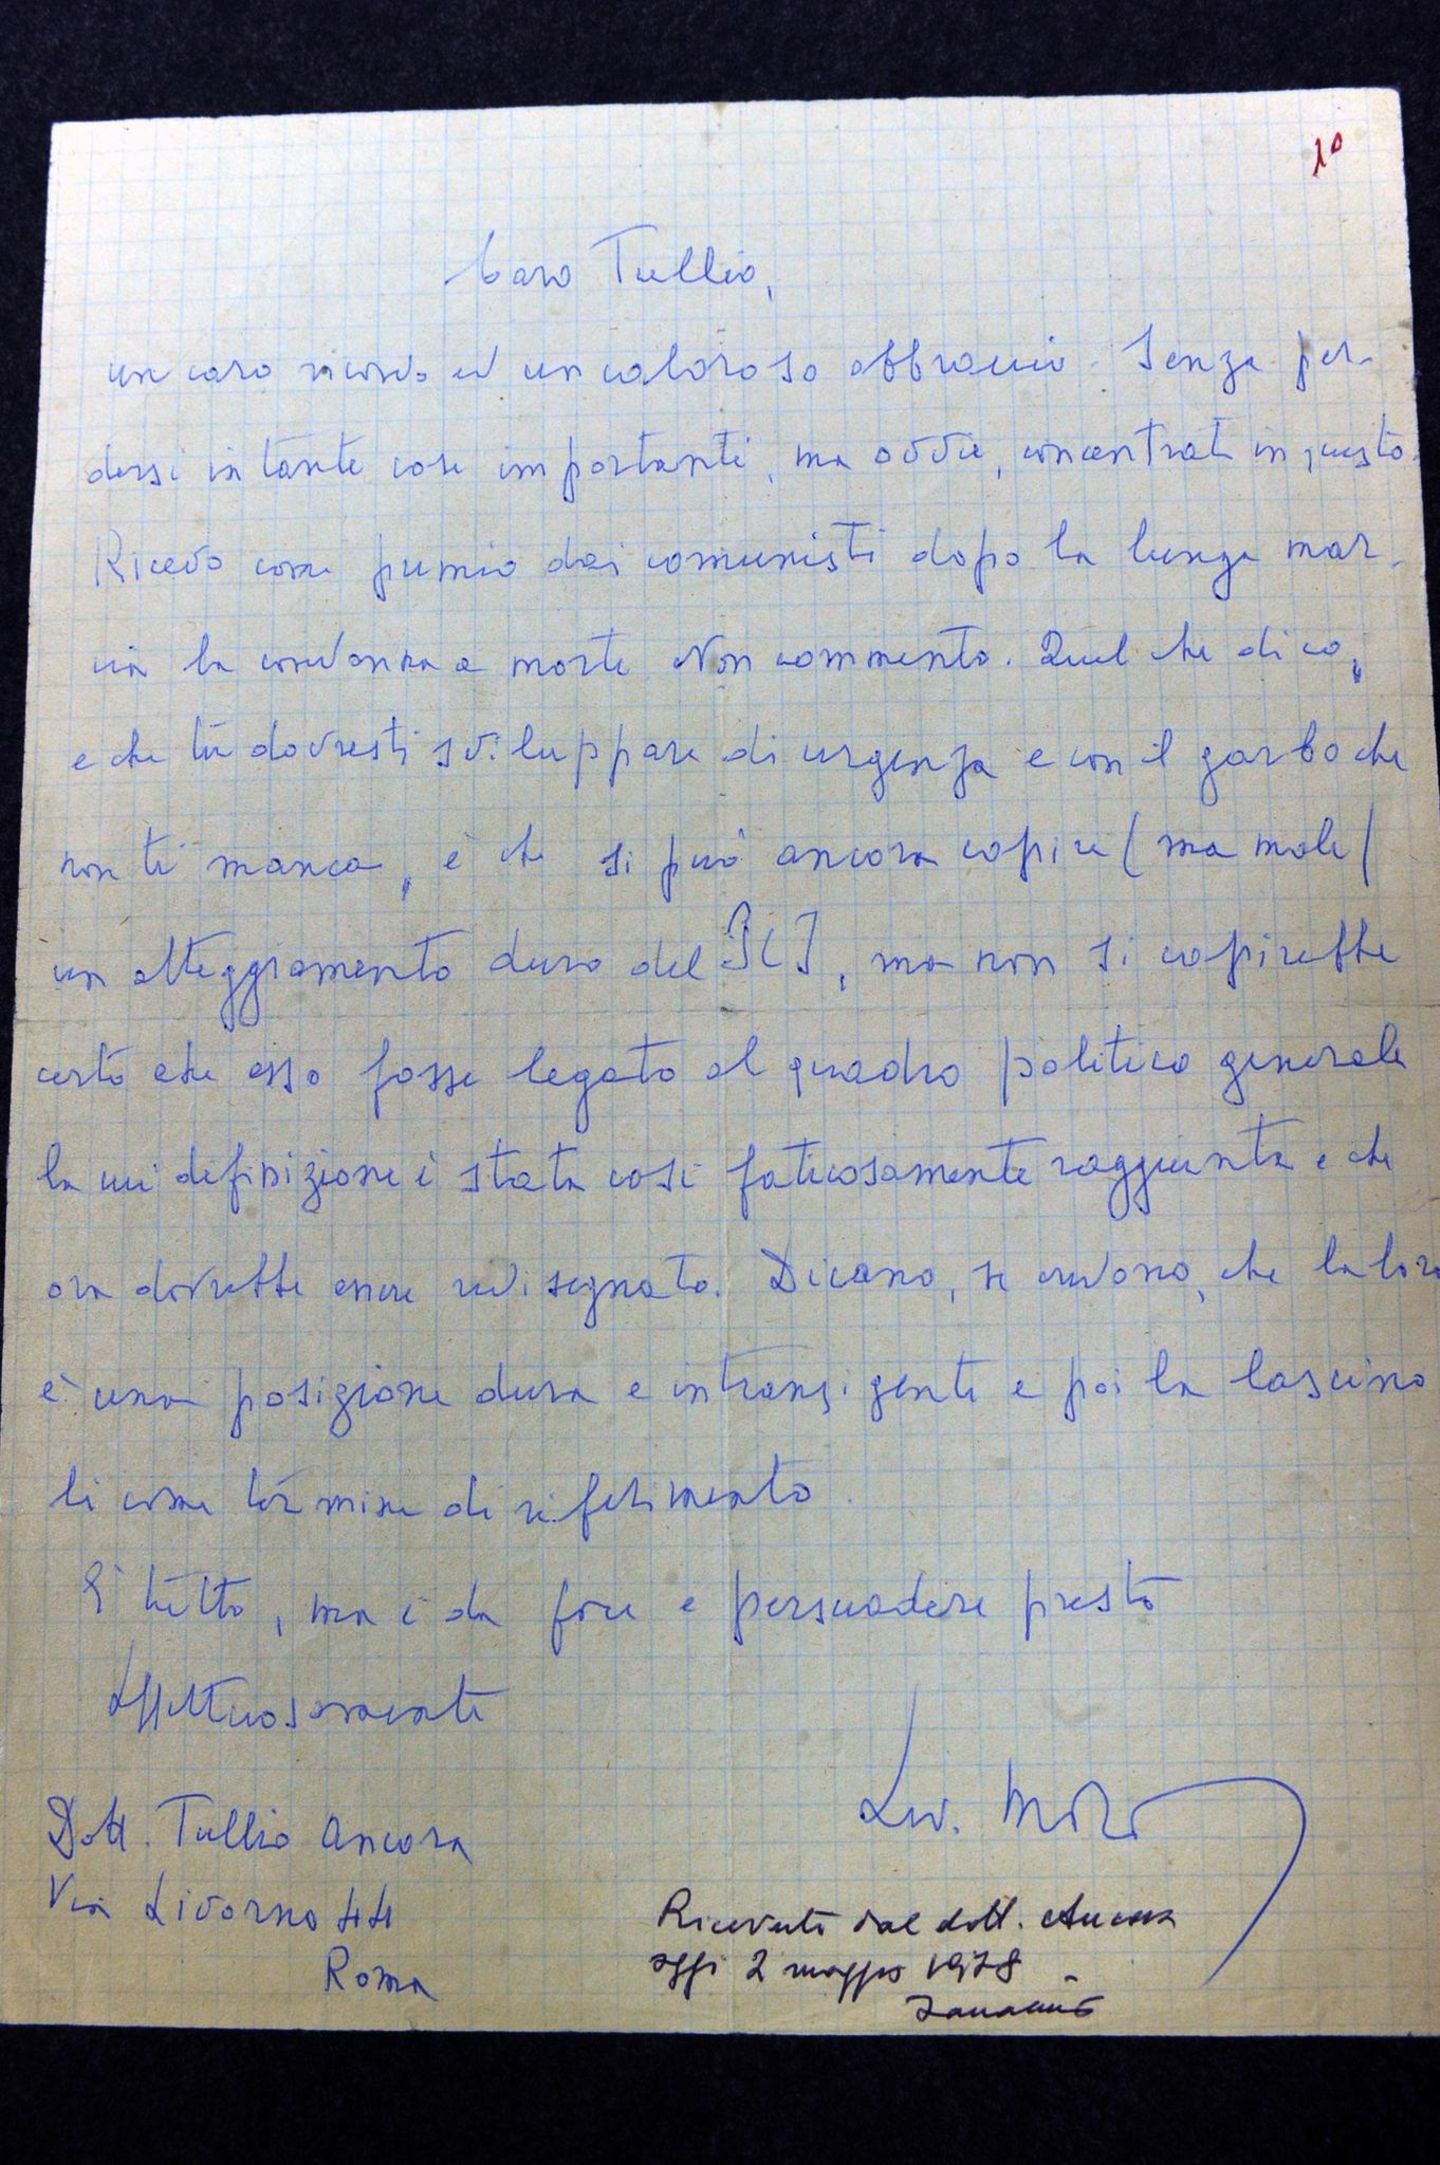 10
Caro Tullio,
un caro ricordo ed un caloroso abbraccio. Senza per-
dersi in tante cose importanti, ma ovvie, concentrati in questo.
Ricevo come premio dai comunisti dopo la lunga mar-
cia la condanna a morte. Non commento. Quel che dico,
e che tu dovresti sviluppare di urgenza e con il garbo che
non ti manca, è che si può ancora capire (ma male)
un atteggiamento duro del PCI, ma non si capirebbe
certo che esso fosse legato al quadro politico generale
la cui definizione è stata così faticosamente raggiunta e che
ora dovrebbe essere ridisegnato. Dicano, se credono, che la loro
è una posizione dura e intransigente e poi la lascino
lì come termine di riferimento.
È tutto, ma è da fare e persuadere presto
Affettuosamente
Dott. Tullio Ancora
Via Livorno 44
Roma
Moro
Ricevuta dal dott. Ancora
oggi 2 maggio 1978